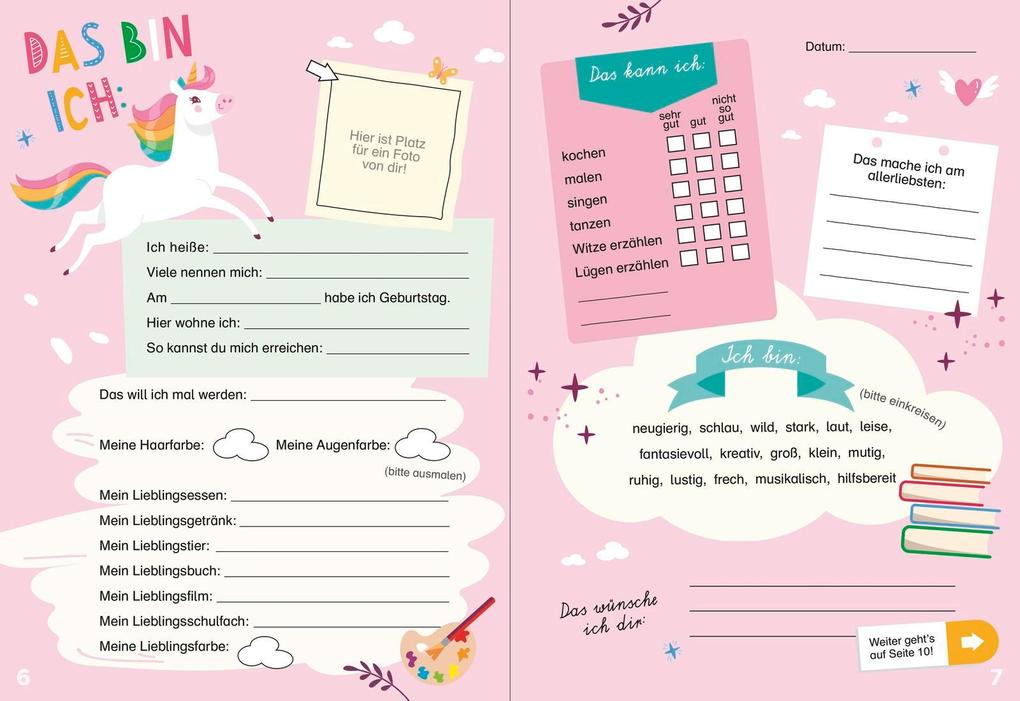 DAS BIN
ICH:
Hier ist Platz
für ein Foto
von dir!
Ich heiße:
Viele nennen mich:
Am habe ich Geburtstag.
Hier wohne ich:
So kannst du mich erreichen:
Das will ich mal werden:
Meine Haarfarbe: Meine Augenfarbe:
(bitte ausmalen)
Mein Lieblingsessen:
Mein Lieblingsgetränk:
Mein Lieblingstier:
Mein Lieblingsbuch:
Mein Lieblingsfilm:
Mein Lieblingsschulfach:
Meine Lieblingsfarbe:
6
Datum:
Das kann ich:
sehr
gut
gut
nicht
so
gut
kochen
malen
singen
tanzen
Witze erzählen
Lügen erzählen
Das mache ich am
allerliebsten:
Ich bin:
(bitte einkreisen)
neugierig, schlau, wild, stark, laut, leise,
fantasievoll, kreativ, groß, klein, mutig,
ruhig, lustig, frech, musikalisch, hilfsbereit
Das wünsche
ich dir:
Weiter geht's
auf Seite 10!
7